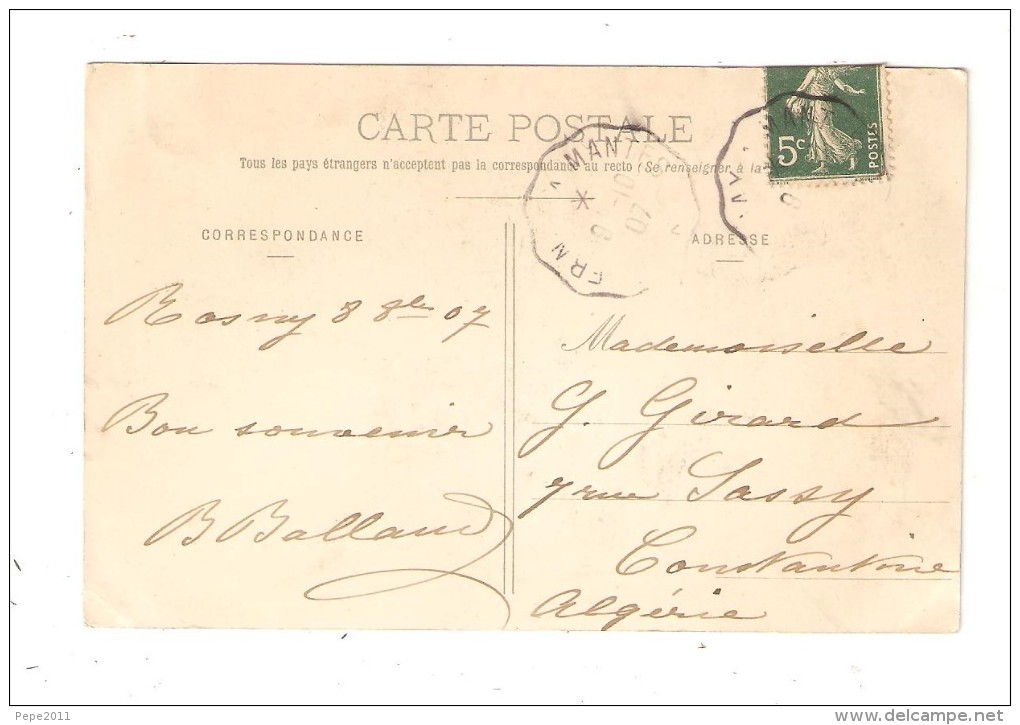 CARTE POSTALE
Tous les pays étrangers n'acceptent pas la correspondance au recto (Se renseigner à la
5c
POSTES
MANT
MANT
ERN
CORRESPONDANCE
ADRESSE
Rosny 8 8bre 07
Bon souvenir
B Balland
Mademoiselle
G. Girard
7 rue Sassy
Constantine
Algérie
Pepe2011
www.delcampe.net